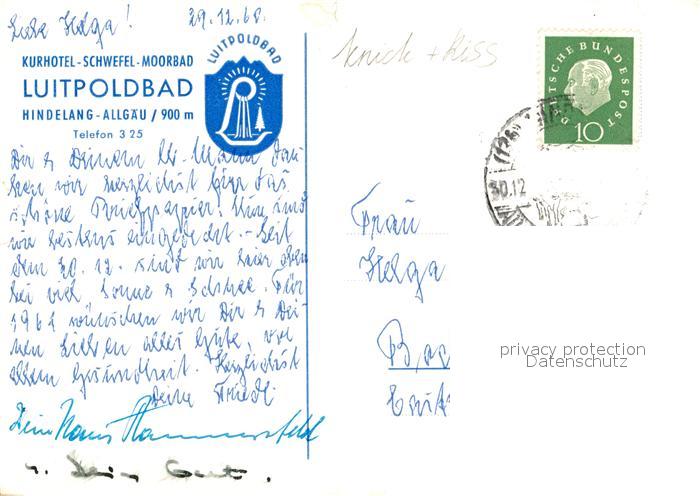 Liebe Helga! 29.12.60.
LUITPOLDBAD
KURHOTEL-SCHWEFEL-MOORBAD
LUITPOLDBAD
HINDELANG-ALLGÄU / 900 m
Telefon 3 25
Dir & Deinem lb. Mann dan-
ken wir herzlichst für das
schöne Briefpapier. Nun sind
wir bestens eingedeckt. - Seit
dem 20. 12. sind wir hier oben
bei viel Sonne & Schnee. Für
1961 wünschen wir Dir & Dei-
nen Lieben alles Gute, vor
allem Gesundheit. Herzlichst
Deine Friedl
Dein Hans
u. Dein Gert.
Knick + Riss
DEUTSCHE BUNDESPOST
10
30.12
Frau
Helga
privacy protection
Datenschutz